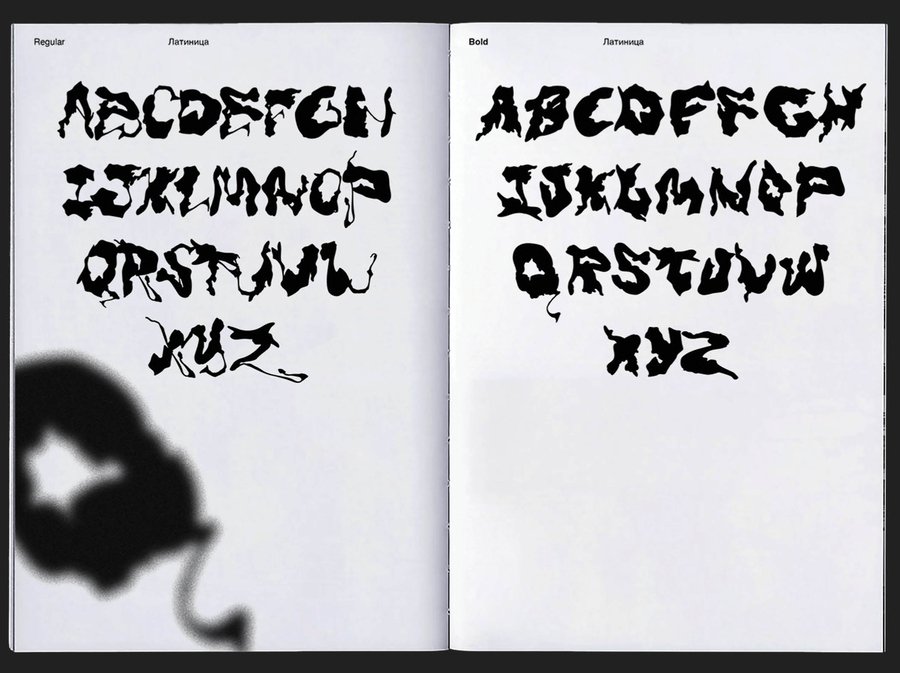 Regular
Латиница
ABCDEFGH
IJKLMNOP
QRSTUVW
XYZ
Bold
Латиница
ABCDEFGH
IJKLMNOP
QRSTUVW
XYZ